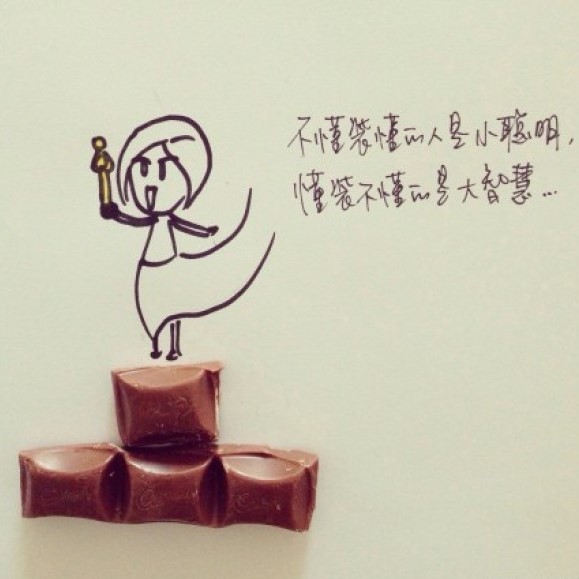 不懂装懂的人是小聪明，
懂装不懂的是大智慧…